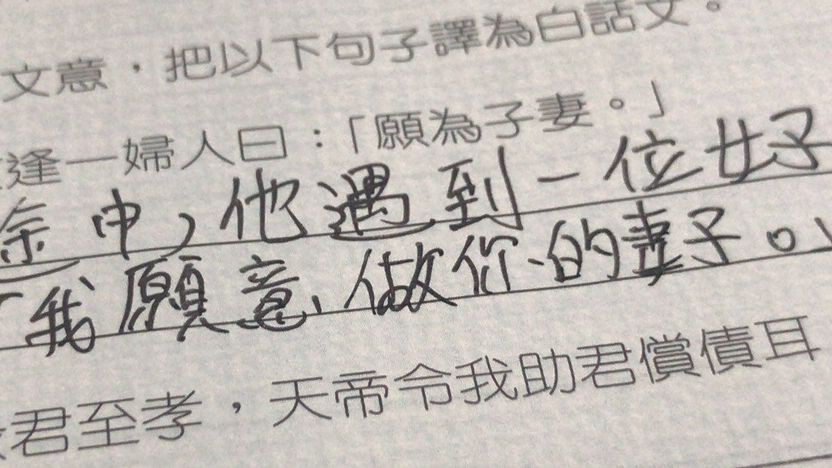 文意，把以下句子譯為白話文。
逢一婦人曰：「願為子妻。」
中，他遇到一位女子
「我願意做你的妻子。」
君至孝，天帝令我助君償債耳